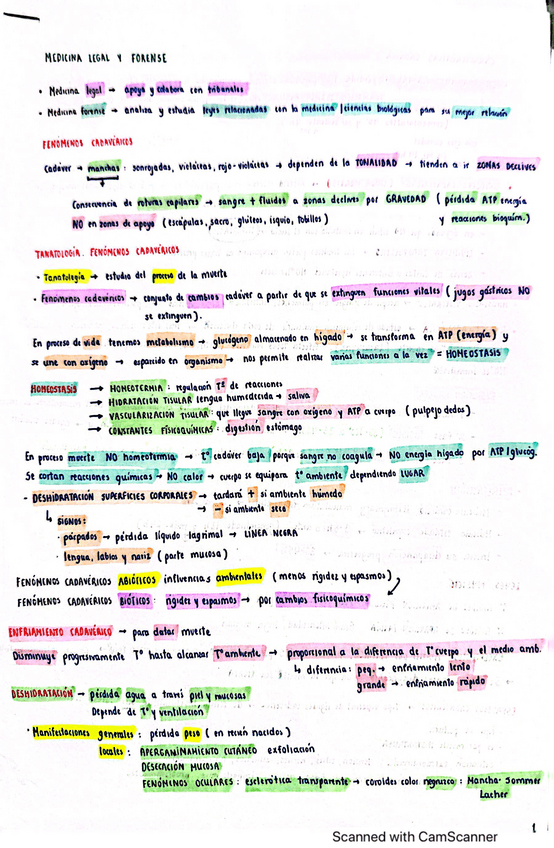 MEDICINA LEGAL Y FORENSE
• Medicina legal → apoyo y colabora con tribunales
• Medicina forense → analiza y estudia leyes relacionadas con la medicina/ciencias biológicas para su mejor relación
FENÓMENOS CADAVÉRICOS
Cadáver → manchas: sonrojadas, violáceas, rojo-violáceas → dependen de la TONALIDAD → tienden a ir ZONAS DECLIVES
Consecuencia de roturas capilares → sangre + fluidos a zonas declives por GRAVEDAD ( pérdida ATP energía
NO en zonas de apoyo (escápulas, sacro, glúteos, isquio, tobillos) y reacciones bioquím.)
TANATOLOGÍA. FENÓMENOS CADAVÉRICOS
• Tanatología → estudio del proceso de la muerte
• Fenómenos cadavéricos → conjunto de cambios cadáver a partir de que se extinguen funciones vitales ( jugos gástricos NO
se extinguen).
En proceso de vida tenemos metabolismo → glucógeno almacenado en hígado → se transforma en ATP (energía) y
se une con oxígeno → esparcido en organismo → nos permite realizar varias funciones a la vez = HOMEOSTASIS
HOMEOSTASIS → HOMEOTERMIA: regulación Tª de reacciones
→ HIDRATACIÓN TISULAR lengua humedecida → saliva
→ VASCULARIZACIÓN TISULAR: que llegue sangre con oxígeno y ATP a cuerpo ( pulpejo dedos)
→ CONSTANTES FÍSICOQUÍMICAS: digestión estómago
En proceso muerte NO homeotermia → tª cadáver baja porque sangre no coagula → NO energía hígado por ATP/glucóg.
Se cortan reacciones químicas → NO calor → cuerpo se equipara tª ambiente dependiendo LUGAR
- DESHIDRATACIÓN SUPERFICIES CORPORALES → tardará + si ambiente húmedo
→ - si ambiente seco
↳ SIGNOS:
• párpados → pérdida líquido lagrimal → LÍNEA NEGRA
• lengua, labios y nariz ( parte mucosa)
FENÓMENOS CADAVÉRICOS ABIÓTICOS influencias ambientales (menos rigidez y espasmos)
FENÓMENOS CADAVÉRICOS BIÓTICOS rigidez y espasmos → por cambios fisicoquímicos
ENFRIAMIENTO CADAVÉRICO → para datar muerte
Disminuye progresivamente Tª hasta alcanzar Tª ambiente → proporcional a la diferencia de Tª cuerpo y el medio amb.
↳ diferencia: peq. → enfriamiento lento
grande → enfriamiento rápido
DESHIDRATACIÓN → pérdida agua a través piel y mucosas
Depende de Tª y ventilación
• Manifestaciones generales: pérdida peso ( en recién nacidos)
locales: APERGAMINAMIENTO CUTÁNEO exfoliación
DESECACIÓN MUCOSA
FENÓMENOS OCULARES: esclerótica transparente → coroides color negruzco: Mancha Sommer
Lacher
1
Scanned with CamScanner